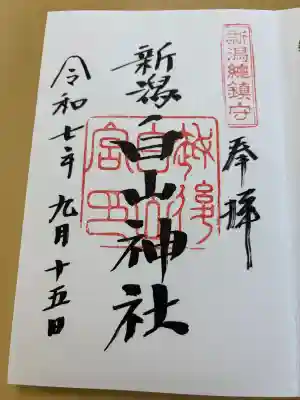 新潟総鎮守
奉拝
新潟白山神社
越後
白山
宮印
令和七年九月十五日